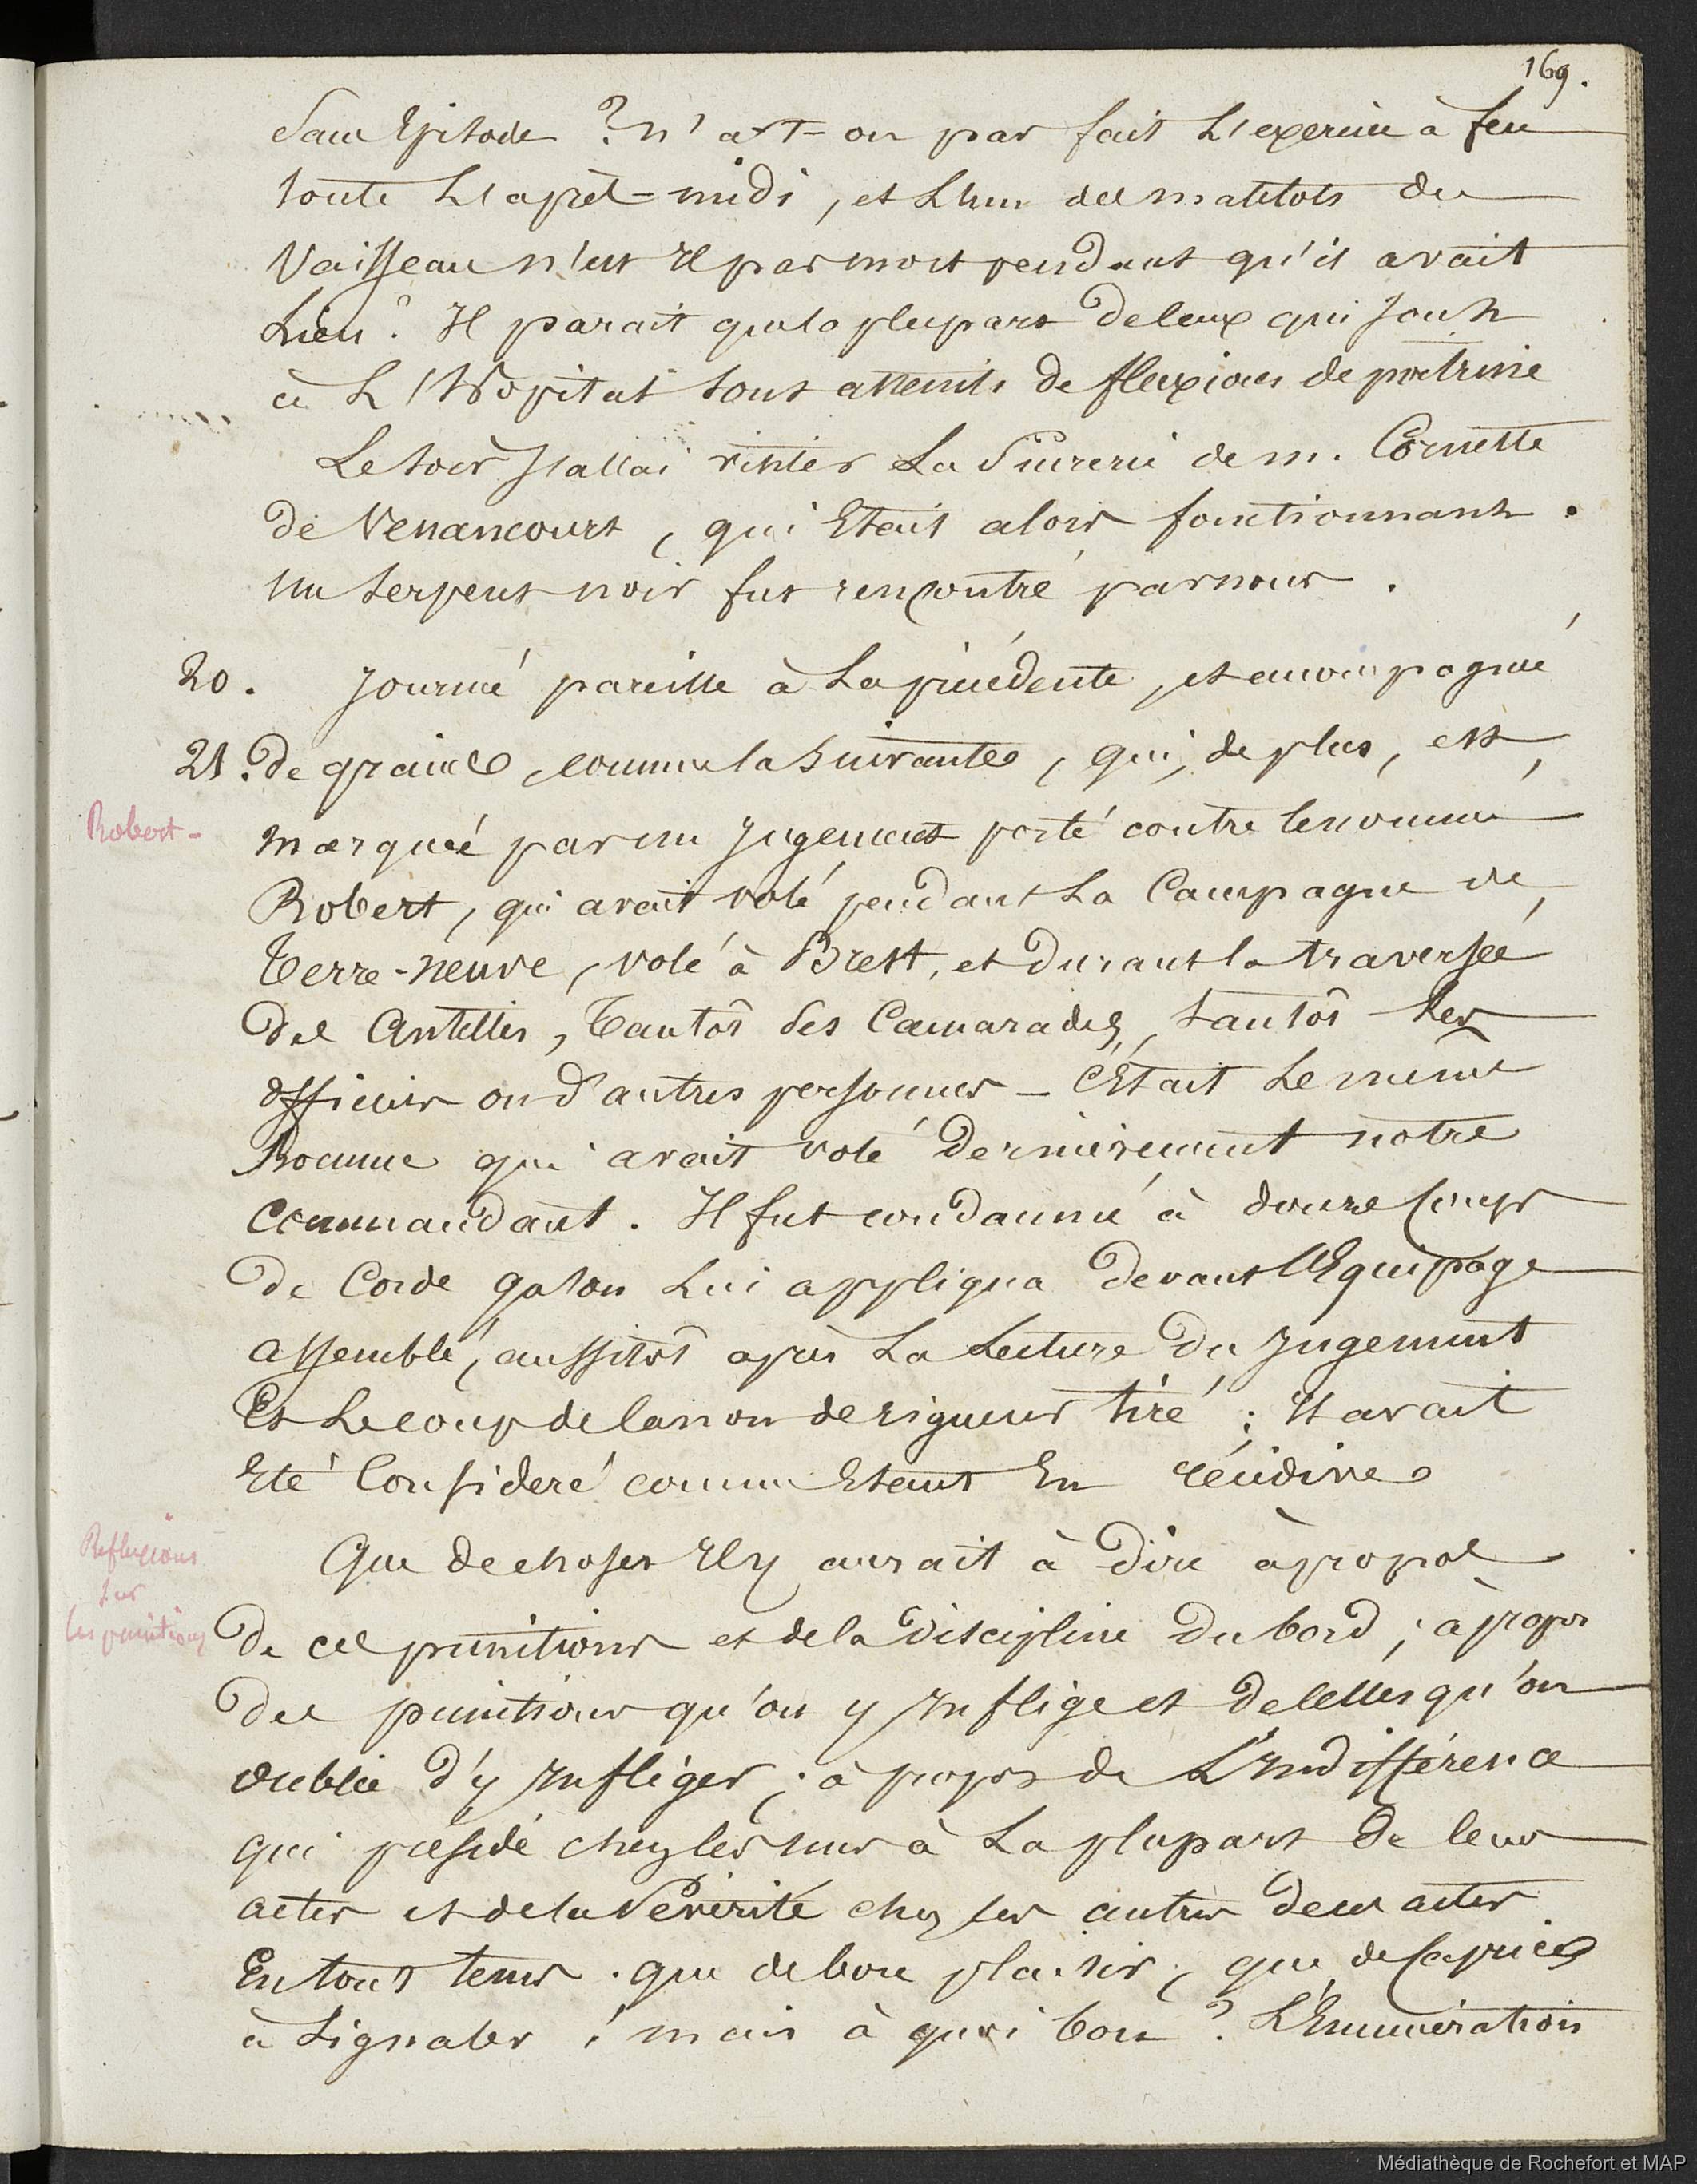 169.
Sans Episode ? n'a-t-on pas fait L'exercice à feu
toute L'après-midi, et L'un des matelots du
Vaisseau n'est il pas mort pendant qu'il avait
Lieu ? Il parait que la plupart de ceux qui sont
à L'Hopital sont atteints de fluxions de poitrine
Le soir J'allai visiter La Sucrerie de m. Cornette
de Venancourt, qui Etait alors fonctionnant.
Un serpent noir fut rencontré par nous.
20. Journée pareille à La précédente, et accompagnée
21. de grains, comme la Suivante, qui, de plus, est,
Robert-
marquée par un Jugement porté contre le nommé
Robert, qui avait volé pendant La Campagne de,
Terre-neuve, volé à Brest, et durant la traversée
des Antilles, Tantôt ses Camarades, tantôt les
officiers ou d'autres personnes - C'Etait Le même
homme qui avait volé dernièrement notre
Commandant. Il fut condamné à douze Coups
de Corde qu'on Lui appliqua devant l'Equipage
assemblé, aussitôt après La Lecture du Jugement
Et Le coup de Canon de rigueur tiré ; Il avait
Eté Consideré comme Etant En récidive
Reflexions
sur
les punitions
Que de choses Il y aurait à dire à propos
de ces punitions et de la Discipline du bord ; à propos
des punitions qu'on y Inflige et de celles qu'on
oublie d'y Infliger ; à propos de L'Indifférence
qui préside chez les uns à La plupart de leurs
actes et de la Sévérité chez les autres de ces actes
En tout tems. que de bon plaisir, que de Caprices
à Signaler ! mais à quoi bon ? L'Enumération
Médiathèque de Rochefort et MAP